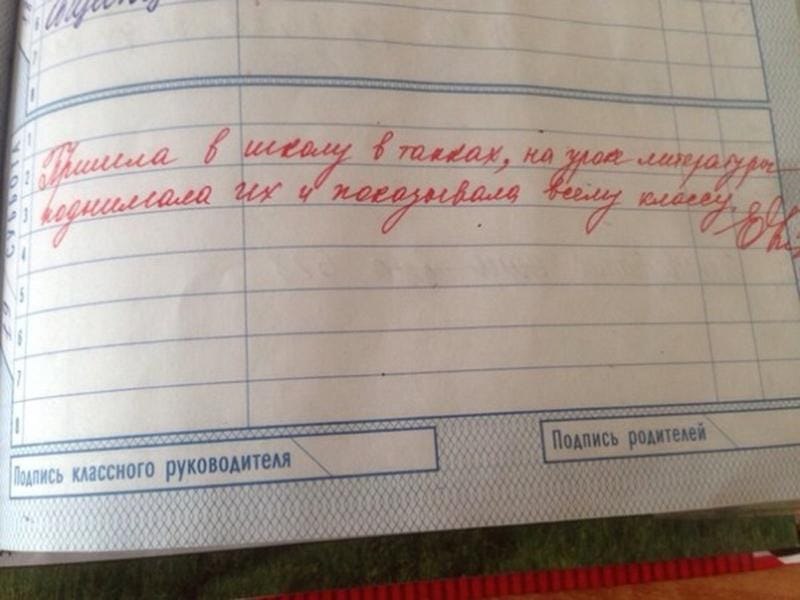 6
7
8
СУББОТА
1
Пришла в школу в тапках, на урок литературы
2
поднимала их и показывала всему классу.
3
4
5
6
7
8
Подпись классного руководителя
Подпись родителей